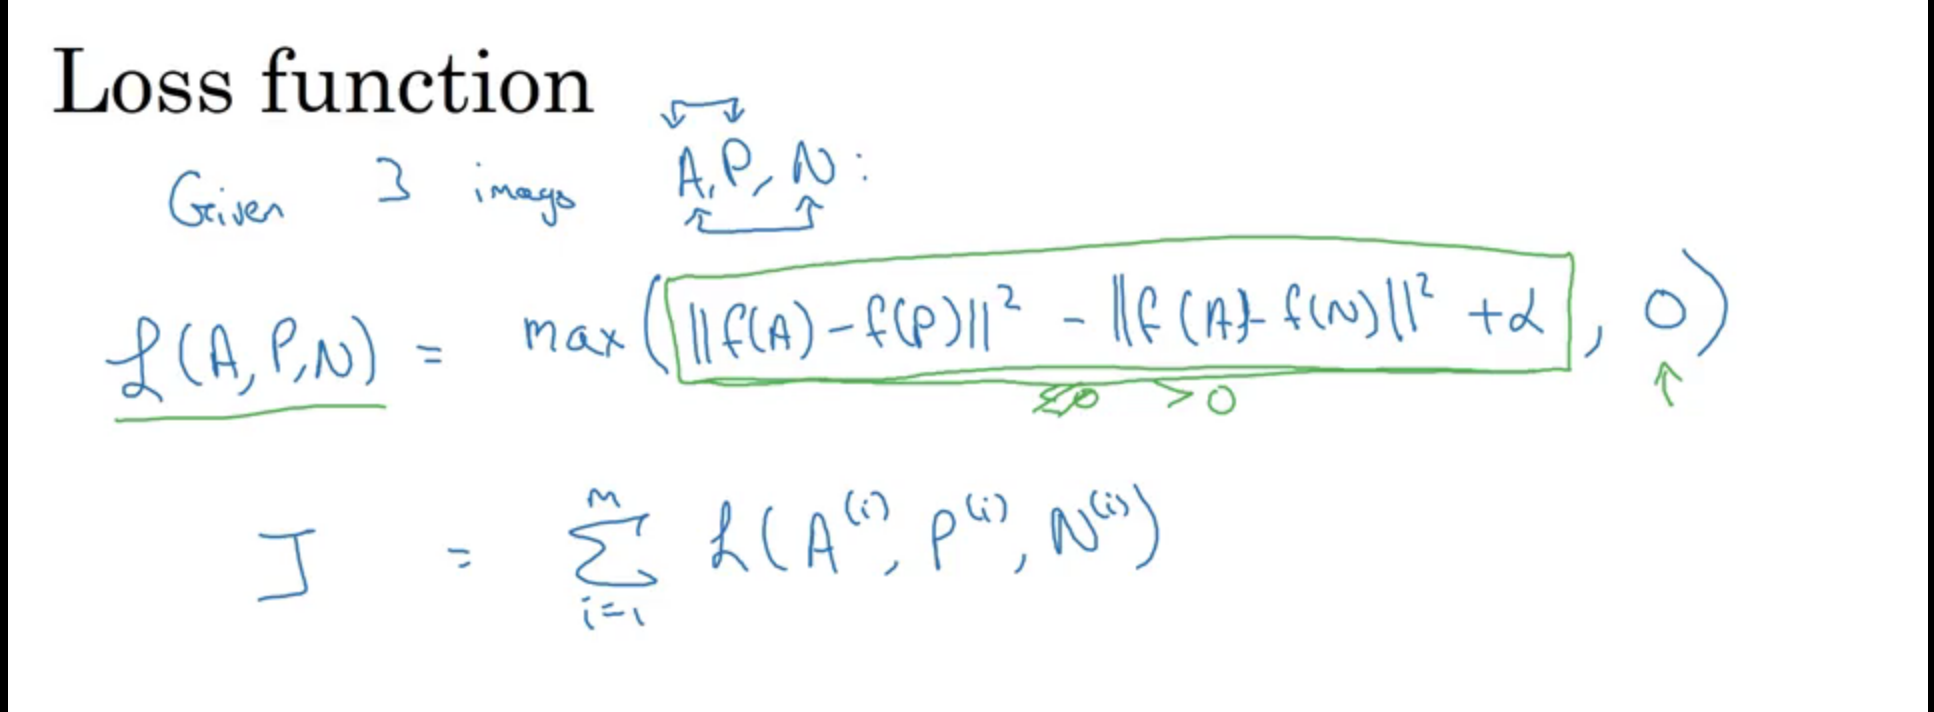 Loss function
Given 3 images A, P, N :
ℒ(A, P, N) = max(||f(A) - f(P)||² - ||f(A) - f(N)||² + α, 0)
> 0 ↑
J = Σ_{i=1}^{M} ℒ(A^{(i)}, P^{(i)}, N^{(i)})